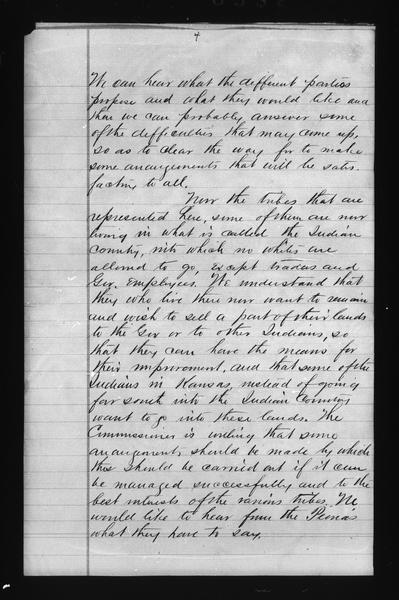 4
We can hear what the different parties
propose and what they would like and
then we can probably answer some
of the difficulties that may come up,
so as to clear the way for to make
some arrangements that will be satis-
factory to all.
Now the tribes that are
represented here, some of them are now
living in what is called the Indian
Country, into which no whites are
allowed to go, except traders and
Gov. Employees. We understand that
they who live there now want to remain
and wish to sell a part of their lands
to the Gov or to other Indians, so
that they can have the means for
their improvement, and that some of the
Indians in Kansas, instead of going
far south into the Indian Country
want to go into these lands. The
Commissioner is willing that some
arrangements should be made by which
this should be carried out if it can
be managed successfully and to the
best interests of the various tribes. We
would like to hear from the Peorias
what they have to say.